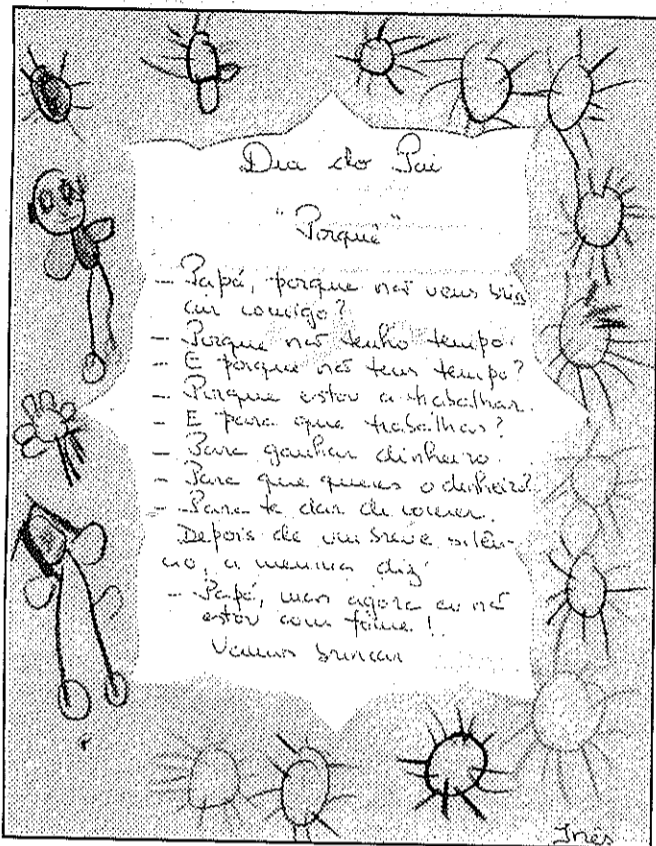 Dia do Pai
"Porquê"
- Papá, porque não vens brin
car comigo?
- Porque não tenho tempo.
- E porque não tens tempo?
- Porque estou a trabalhar.
- E para que trabalhas?
- Para ganhar dinheiro.
- Para que queres o dinheiro?
- Para te dar de comer.
Depois de um breve silên-
cio, a menina diz:
- Papá, mas agora eu não
estou com fome!
Vamos brincar
Inês